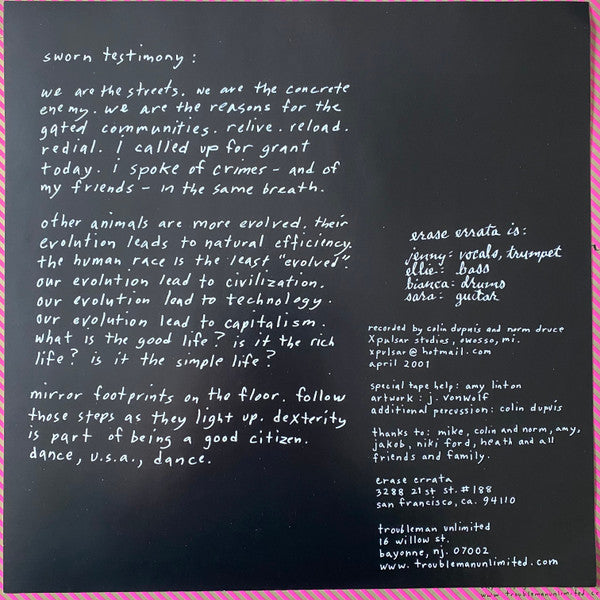 sworn testimony:
we are the streets. we are the concrete
enemy. we are the reasons for the
gated communities. relive. reload.
redial. I called up for grant
today. i spoke of crimes - and of
my friends - in the same breath.
other animals are more evolved. their
evolution leads to natural efficiency.
the human race is the least "evolved".
our evolution lead to civilization.
our evolution lead to technology.
our evolution lead to capitalism.
what is the good life? is it the rich
life? is it the simple life?
mirror footprints on the floor. follow
those steps as they light up. dexterity
is part of being a good citizen.
dance, u.s.a., dance.
erase errata is:
jenny: vocals, trumpet
ellie: bass
bianca: drums
sara: guitar
recorded by colin dupuis and norm druce
Xpulsar studios, owosso, mi.
xpulsar@hotmail.com
april 2001
special tape help: amy linton
artwork: j. vonwolf
additional percussion: colin dupuis
thanks to: mike, colin and norm, amy,
jakob, niki ford, heath and all
friends and family.
erase errata
3288 21st st. #188
san francisco, ca. 94110
troubleman unlimited
16 willow st.
bayonne, nj. 07002
www.troublemanunlimited.com
www.troublemanunlimited.co